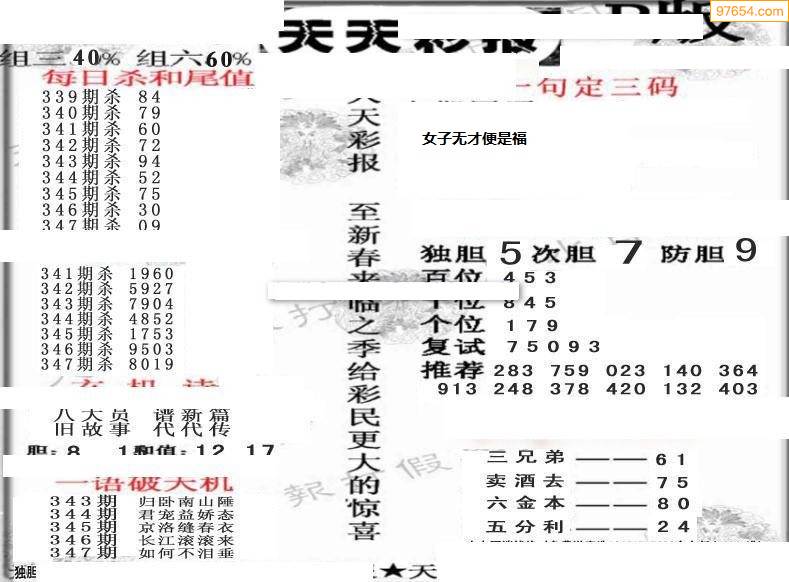 97654.com
天天彩报
版
组三40% 组六60%
每日杀和尾值
339期杀 84
340期杀 79
341期杀 60
342期杀 72
343期杀 94
344期杀 52
345期杀 75
346期杀 30
347期杀 09
341期杀 1960
342期杀 5927
343期杀 7904
344期杀 4852
345期杀 1753
346期杀 9503
347期杀 8019
八大员 谱新篇
旧故事 代代传
胆:8 1和值:12 17
一语破天机
343期 归卧南山陲
344期 君宠益娇态
345期 京洛缝春衣
346期 长江滚滚来
347期 如何不泪垂
独胆
天彩报
至新春来临之季给彩民更大的惊喜
★天
一句定三码
女子无才便是福
独胆 5 次胆 7 防胆 9
百位 453
十位 845
个位 179
复试 75093
推荐 283 759 023 140 364
913 248 378 420 132 403
三兄弟——61
卖酒去——75
六金本——80
五分利——24